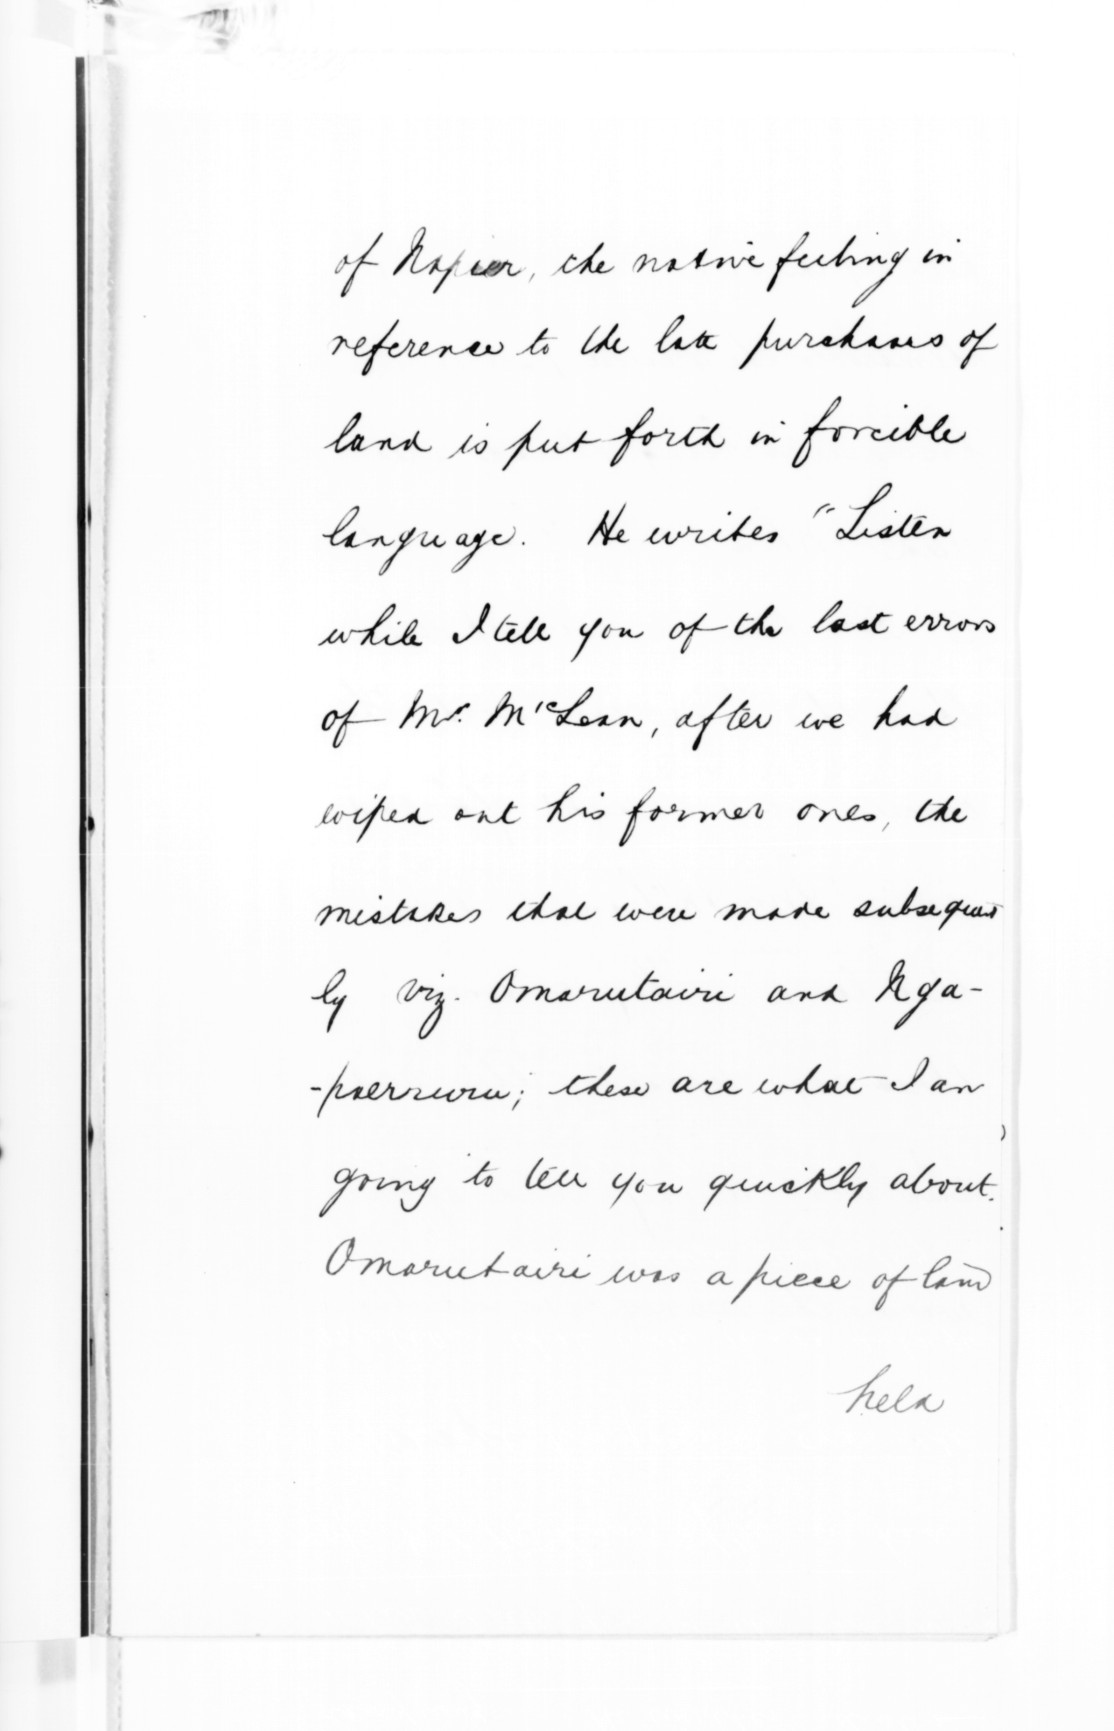 of Napier, the native feeling in
reference to the late purchases of
land is put forth in forcible
language. He writes "Listen
while I tell you of the last errors
of Mr. McLean, after we had
wiped out his former ones, the
mistakes that were made subsequent
ly viz. Omarutairi and Nga-
-paeruru; these are what I am
going to tell you quickly about.
Omarutairi was a piece of land
held